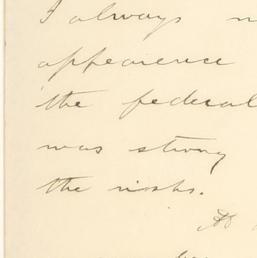 I always
appearience
the federal
was strong
the